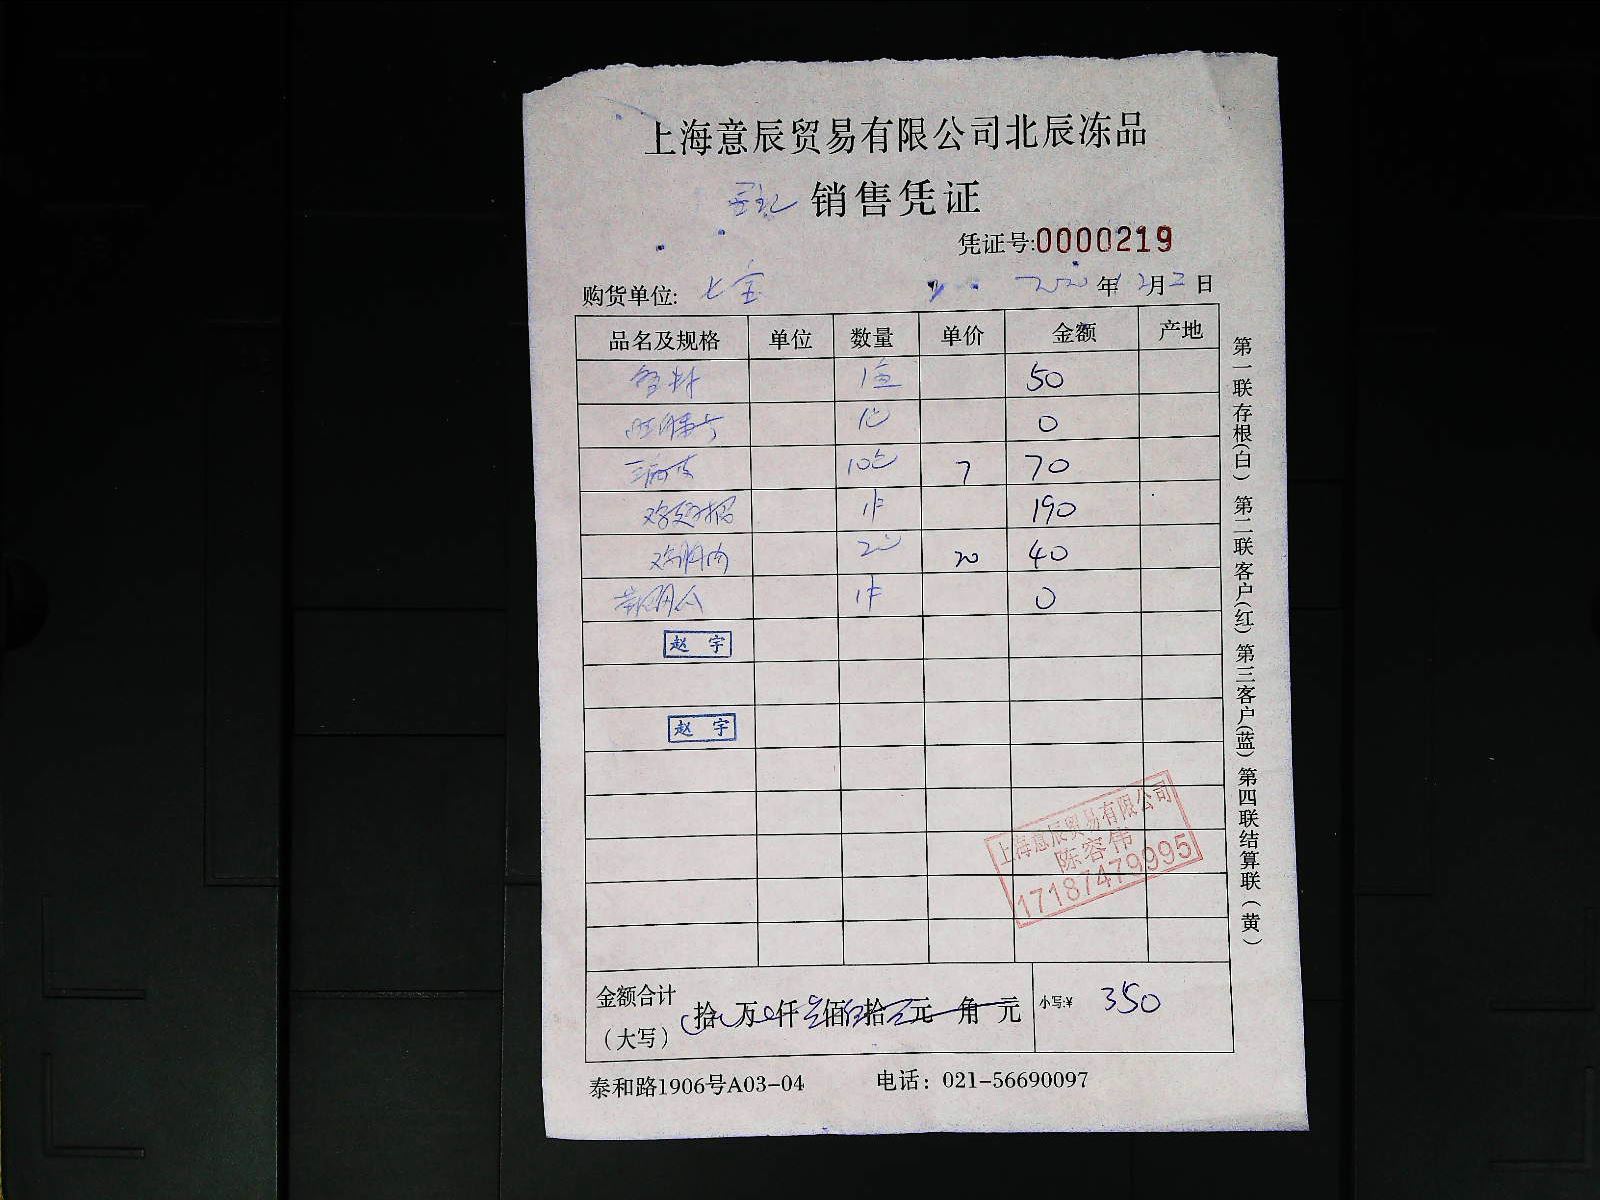 上海意辰贸易有限公司北辰冻品
销售凭证
凭证号:0000219
购货单位: 七宝 2020年12月2日
品名及规格 单位 数量 单价 金额 产地
50
0
10包 7 70
鸡翅根 1件 190
鸡胸肉 2包 20 40
1件 0
赵 宇
赵 宇
上海意辰贸易有限公司
陈容伟
17187479995
金额合计（大写） 拾 万 仟 佰 拾 元 角 元 小写:¥ 350
泰和路1906号A03-04 电话：021-56690097
第一联存根(白) 第二联客户(红) 第三客户(蓝) 第四联结算联(黄)